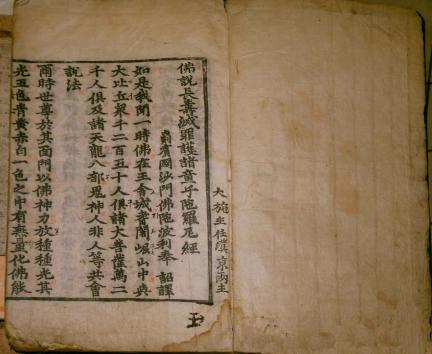 大施主
佛說長壽滅罪護諸童子陀羅尼經
罽賓國沙門佛陀波利奉 詔譯
如是我聞一時佛在王舍城耆闍崛山中與
大比丘眾千二百五十人俱諸大菩薩萬二
千人俱及諸天龍八部鬼神人非人等共會
說法
爾時世尊於其面門以佛神力放種種光其
光五色青黃赤白一色之中有無量化佛能